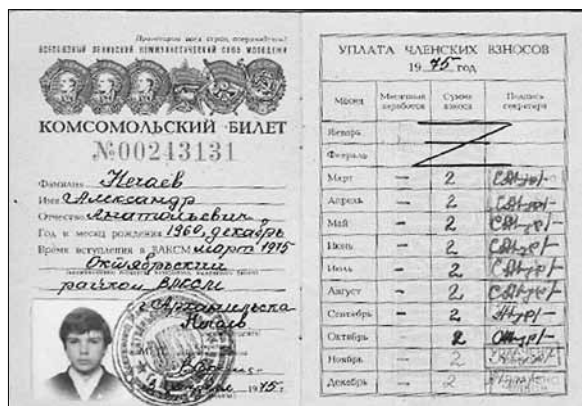 Пролетарии всех стран, соединяйтесь!
ВСЕСОЮЗНЫЙ ЛЕНИНСКИЙ КОММУНИСТИЧЕСКИЙ СОЮЗ МОЛОДЕЖИ
КОМСОМОЛЬСКИЙ БИЛЕТ
№00243131
Фамилия Нечаев
Имя Александр
Отчество Анатольевич
Год и месяц рождения 1960, декабрь
Время вступления в ВЛКСМ март 1975
Октябрьский
райком ВЛКСМ
г. Архангельска
Нечаев
1975 г.
УПЛАТА ЧЛЕНСКИХ ВЗНОСОВ
1975 год
Месяц Месячный заработок Сумма взноса Подпись секретаря
Январь
Февраль
Март — 2
Апрель — 2
Май — 2
Июнь — 2
Июль — 2
Август — 2
Сентябрь — 2
Октябрь 2
Ноябрь — 2
Декабрь — 2